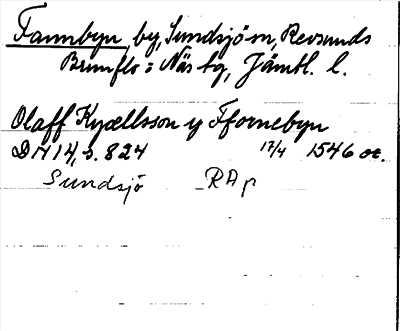 Fannbyn by, Sundsjö sn, Revsunds
Brunflo: Näs tg, Jämtl. l.
Olaff Kyællsson y Ffornebyn
DN 14, s. 824 17/4 1546 or.
Sundsjö RAp